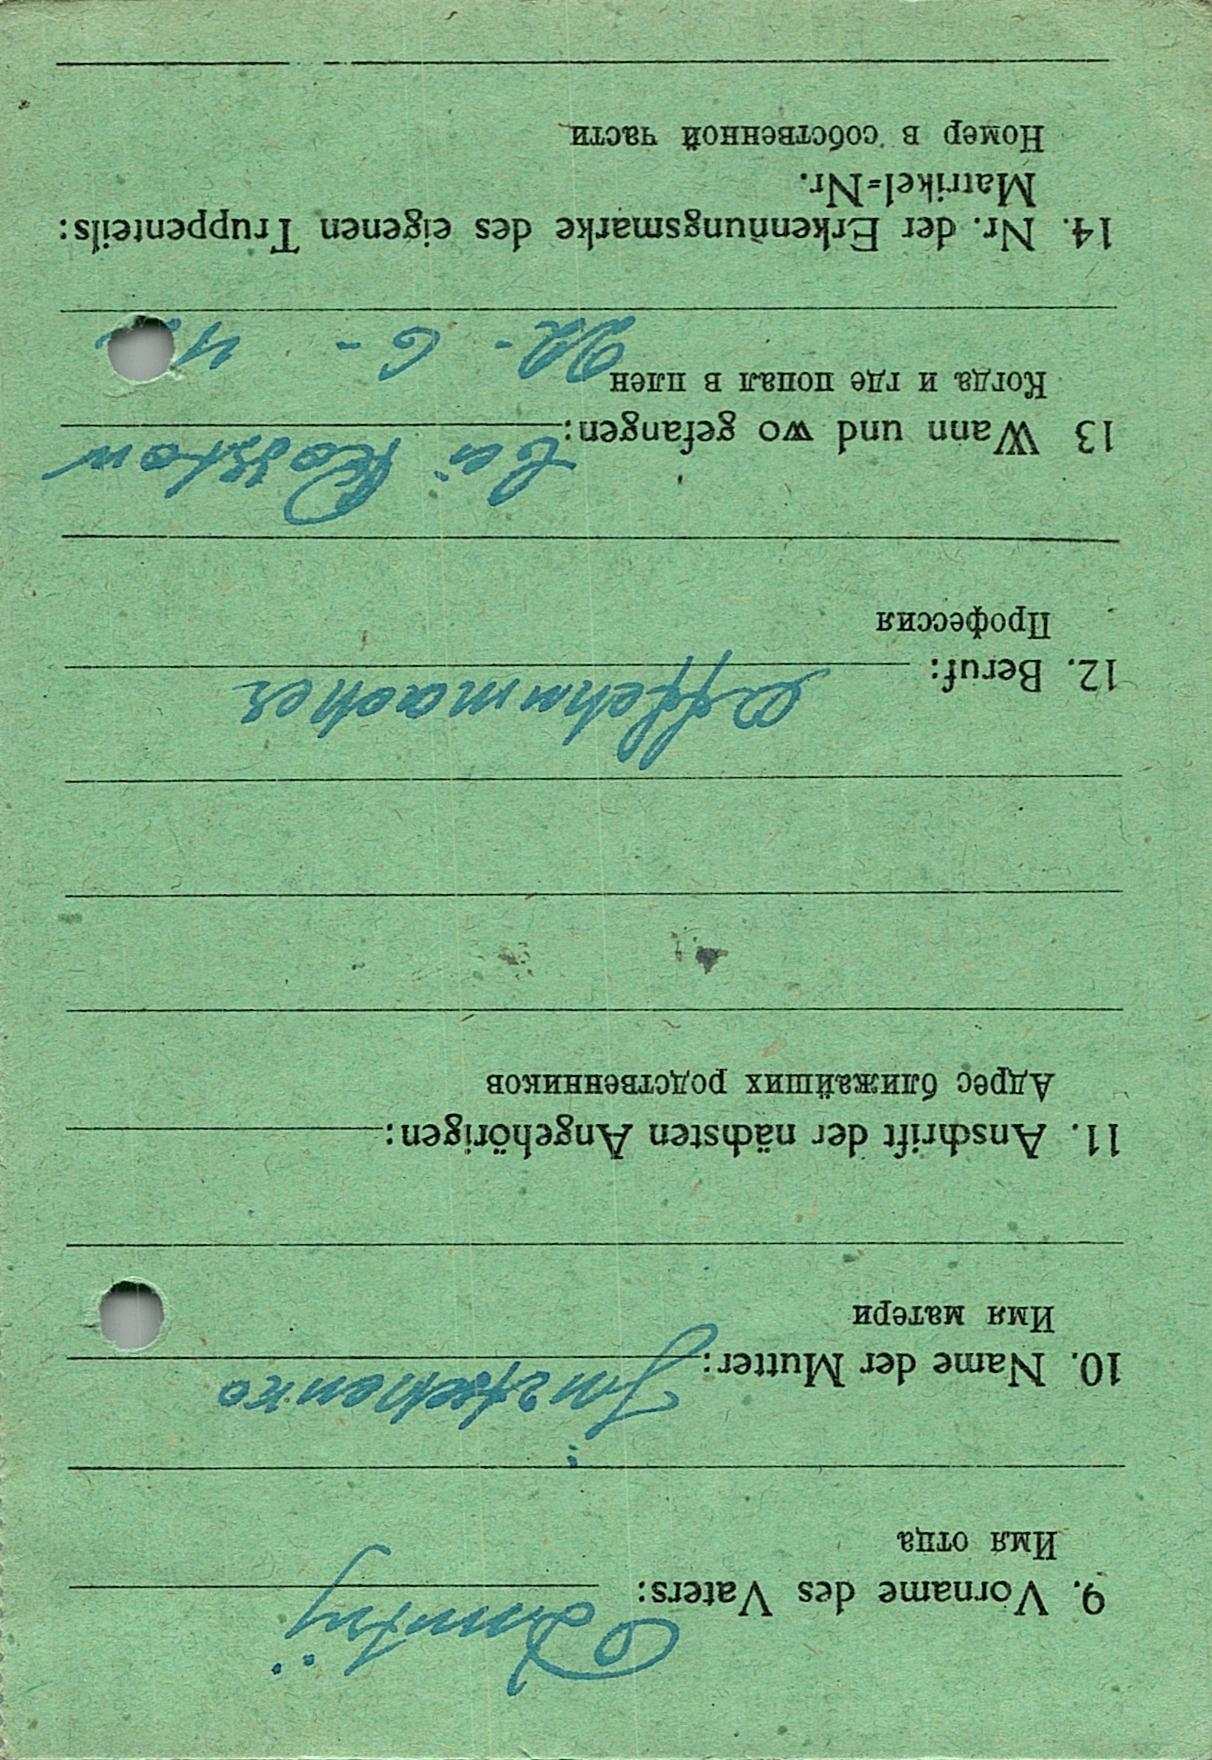 9. Vorname des Vaters: Dmitrij
Имя отца
10. Name der Mutter:
Имя матери
11. Anschrift der nächsten Angehörigen:
Адрес ближайших родственников
12. Beruf:
Профессия
13 Wann und wo gefangen: bei Rostow
Когда и где попал в плен 22-6-
14. Nr. der Erkennungsmarke des eigenen Truppenteils:
Matrikel=Nr.
Номер в собственной части